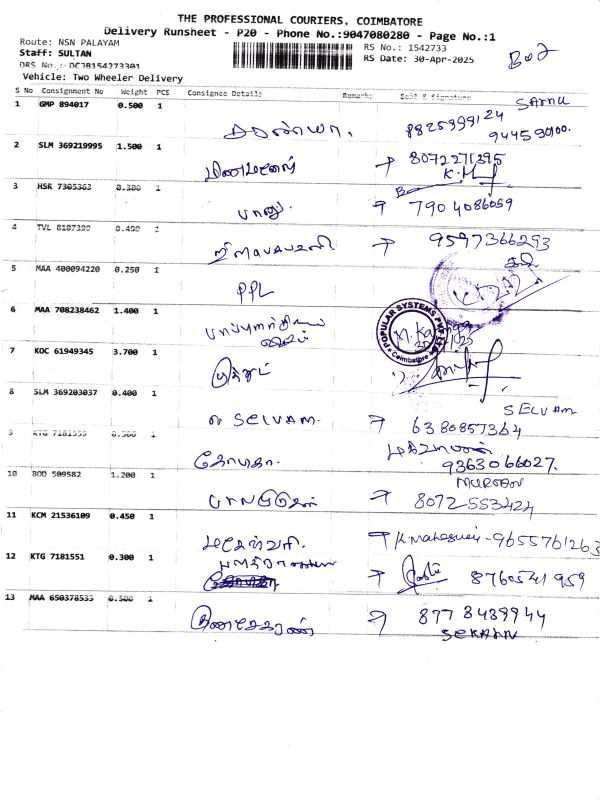 THE PROFESSIONAL COURIERS, COIMBATORE
Delivery Runsheet - P20 - Phone No.:9047080280 - Page No.:1
Route: NSN PALAYAM
RS No.: 1542733
Staff: SULTAN
RS Date: 30-Apr-2025
DRS No.:- DCJB154273301
Vehicle: Two Wheeler Delivery
S No Consignment No Weight PCS Consignee Details Remarks Seal & Signature
SARAU
1 GMP 894017 0.500 1
சரண்யா. 8825999124
2 SLM 369219995 1.500 1
→ 8072271295
3 HSR 7305363 0.300 1
பானு. → 7904086059
4 TVL 8107399 0.490 1
→ 9597366293
5 MAA 400094220 0.250 1
PPL
6 MAA 708238462 1.400 1
POPULAR SYSTEMS PVT LTD
Coimbatore
7 KOC 61949345 3.700 1
8 SLM 369203037 0.400 1
SELVAM
SELVAM. → 6380857364
9 KTG 7181555 0.500 1
கோமதி.
9363066027.
10 BOD 509582 1.200 1
MURGAN
→ 8072553424
11 KCM 21536109 0.450 1
மகேஸ்வரி. → K.Maheswari - 9655761263
12 KTG 7181551 0.300 1
→ 8760541959
13 MAA 650378533 0.500 1
குணசேகரன் → 8778439944
SEKARAN